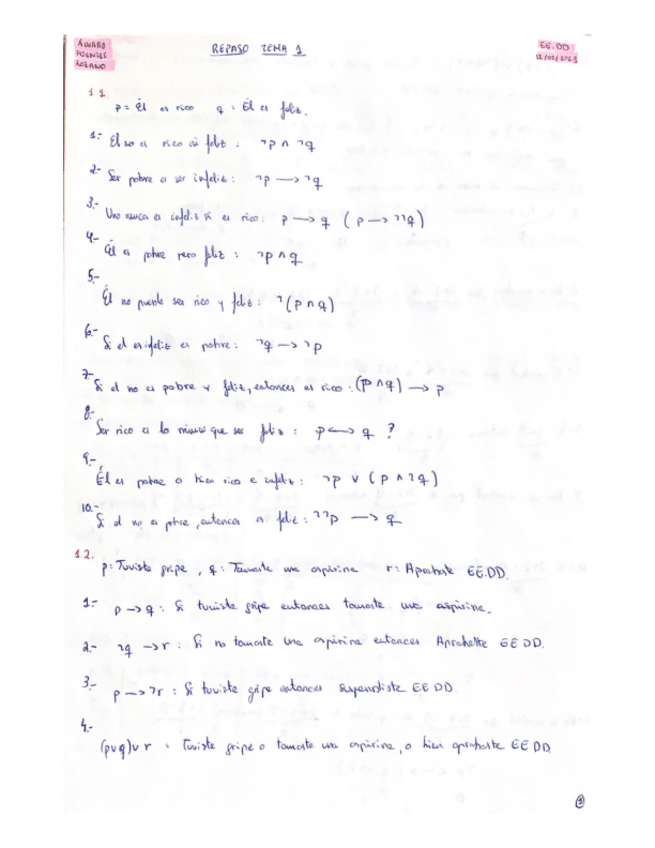 ÁLVARO
FUENTES
LOZANO
REPASO TEMA 1
EE.DD
1.1.
p = Él es rico q : Él es feliz.
1.- Él no es rico ni feliz : ¬p ∧ ¬q
2.- Ser pobre es ser infeliz : ¬p → ¬q
3.- Uno nunca es infeliz si es rico : p → q ( p → ¬¬q )
4.-
Él es pobre pero feliz : ¬p ∧ q
5.-
Él no puede ser rico y feliz : ¬ ( p ∧ q )
6.-
Si el es infeliz es pobre : ¬q → ¬p
7.-
Si el no es pobre y feliz, entonces es rico : (p ∧ q) → p
8.-
Ser rico es lo mismo que ser feliz : p ↔ q ?
9.-
Él es pobre o bien rico e infeliz : ¬p ∨ ( p ∧ ¬q )
10.-
Si el no es pobre, entonces es feliz : ¬¬p → q
1.2.
p : Tuviste gripe , q : Tomaste una aspirina r : Aprobaste EE.DD.
1.- p → q : Si tuviste gripe entonces tomaste una aspirina.
2.- ¬q → r : Si no tomaste una aspirina entonces Aprobaste EE DD.
3.-
p → ¬r : Si tuviste gripe entonces suspendiste EE DD.
4.-
(p ∨ q) ∨ r : Tuviste gripe o tomaste una aspirina, o bien aprobaste EE DD
1